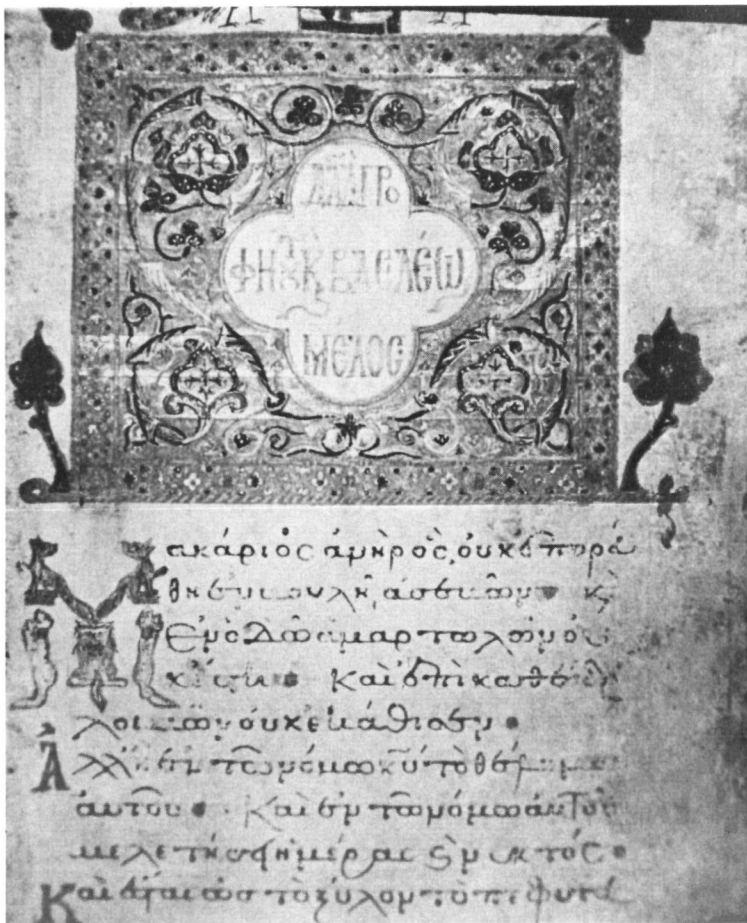 ΔΑΔ ΠΡΟ
ΦΗΤΟΥ Κ ΒΑΣΙΛΕΩ
ΜΕΛΟΣ
Μακάριος ἀνὴρ ὃς οὐκ ἐπορεύ
θη ἐν βουλῆ ἀσεβῶν · κ
ἐν ὁδῶ ἁμαρτωλῶν οὐ
κ ἔστη · Καὶ ἐπὶ καθέδρα
λοιμῶν οὐκ ἐκάθισεν ·
Ἀλλ ἢ ἐν τῶ νόμω κυ τὸ θέλημα
αὐτοῦ · Καὶ ἐν τῶ νόμω αὐτοῦ
μελετήσει ἡμέρας κ νυκτός ·
Καὶ ἔσται ὡς τὸ ξύλον τὸ πεφυτευ